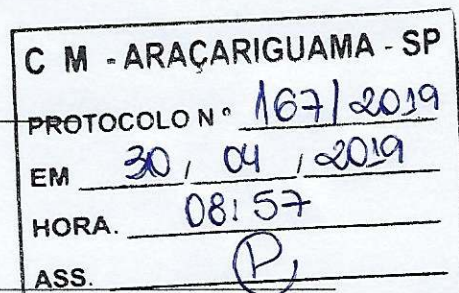 C M - ARAÇARIGUAMA - SP
PROTOCOLO Nº 167/2019
EM 30, 04, 2019
HORA. 08:57
ASS. P